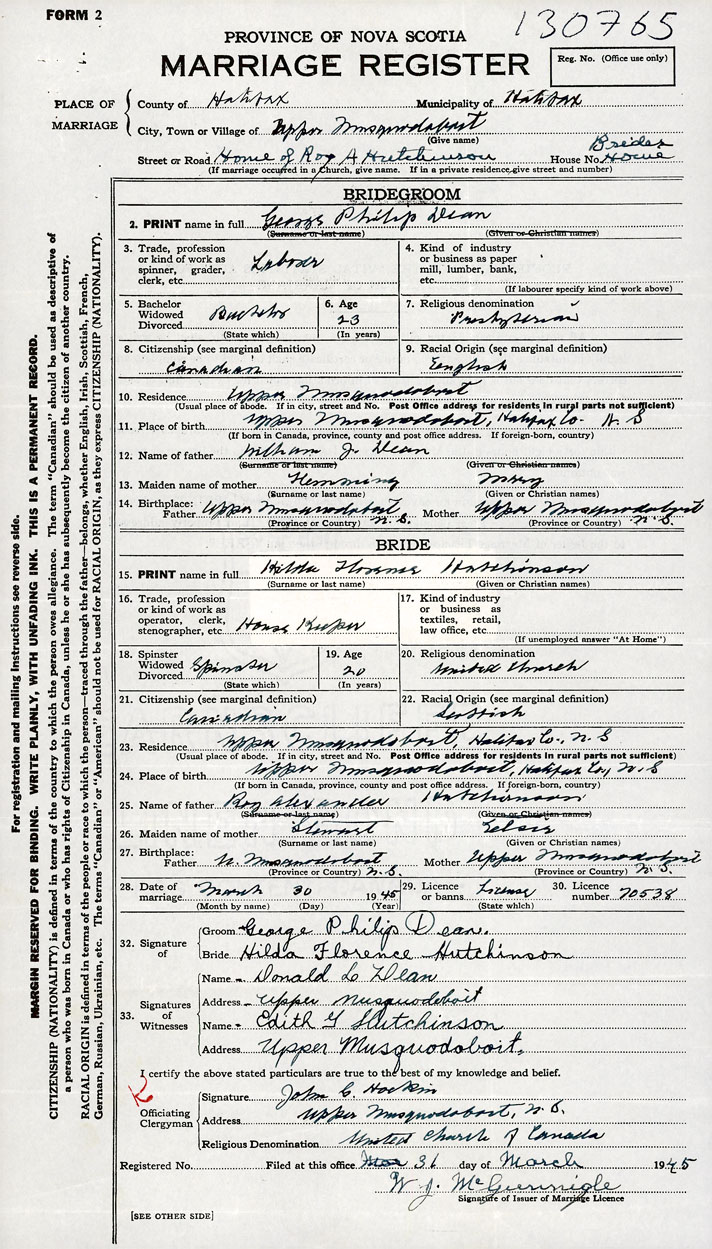 FORM 2
130765
PROVINCE OF NOVA SCOTIA
MARRIAGE REGISTER
Reg. No. (Office use only)
PLACE OF MARRIAGE
County of Halifax Municipality of Halifax
City, Town or Village of Upper Musquodoboit
(Give name)
Street or Road Home of Roy A Hutchinson House No. Brides Home
(If marriage occurred in a Church, give name. If in a private residence, give street and number)
BRIDEGROOM
2. PRINT name in full George Philip Dean
(Surname or last name) (Given or Christian names)
3. Trade, profession or kind of work as spinner, grader, clerk, etc. Laborer
4. Kind of industry or business as paper mill, lumber, bank, etc.
(If labourer specify kind of work above)
5. Bachelor Widowed Divorced Bachelor
(State which)
6. Age 23
(In years)
7. Religious denomination
Presbyterian
8. Citizenship (see marginal definition)
Canadian
9. Racial Origin (see marginal definition)
English
10. Residence Upper Musquodoboit
(Usual place of abode. If in city, street and No. Post Office address for residents in rural parts not sufficient)
11. Place of birth Upper Musquodoboit, Halifax Co. N. S
(If born in Canada, province, county and post office address. If foreign-born, country)
12. Name of father William J. Dean
(Surname or last name) (Given or Christian names)
13. Maiden name of mother Hemming Mary
(Surname or last name) (Given or Christian names)
14. Birthplace: Father Upper Musquodoboit N.S. Mother Upper Musquodoboit N.S.
(Province or Country) (Province or Country)
BRIDE
15. PRINT name in full Hilda Florence Hutchinson
(Surname or last name) (Given or Christian names)
16. Trade, profession or kind of work as operator, clerk, stenographer, etc. House Keeper
17. Kind of industry or business as textiles, retail, law office, etc.
(If unemployed answer "At Home")
18. Spinster Widowed Divorced Spinster
(State which)
19. Age 20
(In years)
20. Religious denomination
United Church
21. Citizenship (see marginal definition)
Canadian
22. Racial Origin (see marginal definition)
Scottish
23. Residence Upper Musquodoboit, Halifax Co., N. S
(Usual place of abode. If in city, street and No. Post Office address for residents in rural parts not sufficient)
24. Place of birth Upper Musquodoboit, Halifax Co., N. S
(If born in Canada, province, county and post office address. If foreign-born, country)
25. Name of father Roy Alexander Hutchinson
(Surname or last name) (Given or Christian names)
26. Maiden name of mother Stewart Elsie
(Surname or last name) (Given or Christian names)
27. Birthplace: Father U. Musquodoboit N.S. Mother Upper Musquodoboit N.S.
(Province or Country) (Province or Country)
28. Date of marriage March 30 1945
(Month by name) (Day) (Year)
29. Licence or banns License
(State which)
30. Licence number 70538
32. Signature of
Groom George Philip Dean.
Bride Hilda Florence Hutchinson
33. Signatures of Witnesses
Name Donald L Dean
Address Upper Musquodoboit
Name Edith G Hutchinson
Address Upper Musquodoboit.
I certify the above stated particulars are true to the best of my knowledge and belief.
Officiating Clergyman
Signature John C. Hockin
Address Upper Musquodoboit, N.S.
Religious Denomination United Church of Canada
Registered No. Filed at this office 31 day of March 1945
W J. McGunnigle
Signature of Issuer of Marriage Licence
[SEE OTHER SIDE]
For registration and mailing instructions see reverse side.
MARGIN RESERVED FOR BINDING. WRITE PLAINLY, WITH UNFADING INK. THIS IS A PERMANENT RECORD.
CITIZENSHIP (NATIONALITY) is defined in terms of the country to which the person owes allegiance. The term "Canadian" should be used as descriptive of
a person who was born in Canada or who has rights of Citizenship in Canada, unless he or she has subsequently become the citizen of another country.
RACIAL ORIGIN is defined in terms of the people or race to which the person—traced through the father—belongs, whether English, Irish, Scottish, French,
German, Russian, Ukrainian, etc. The terms "Canadian" or "American" should not be used for RACIAL ORIGIN, as they express CITIZENSHIP (NATIONALITY).